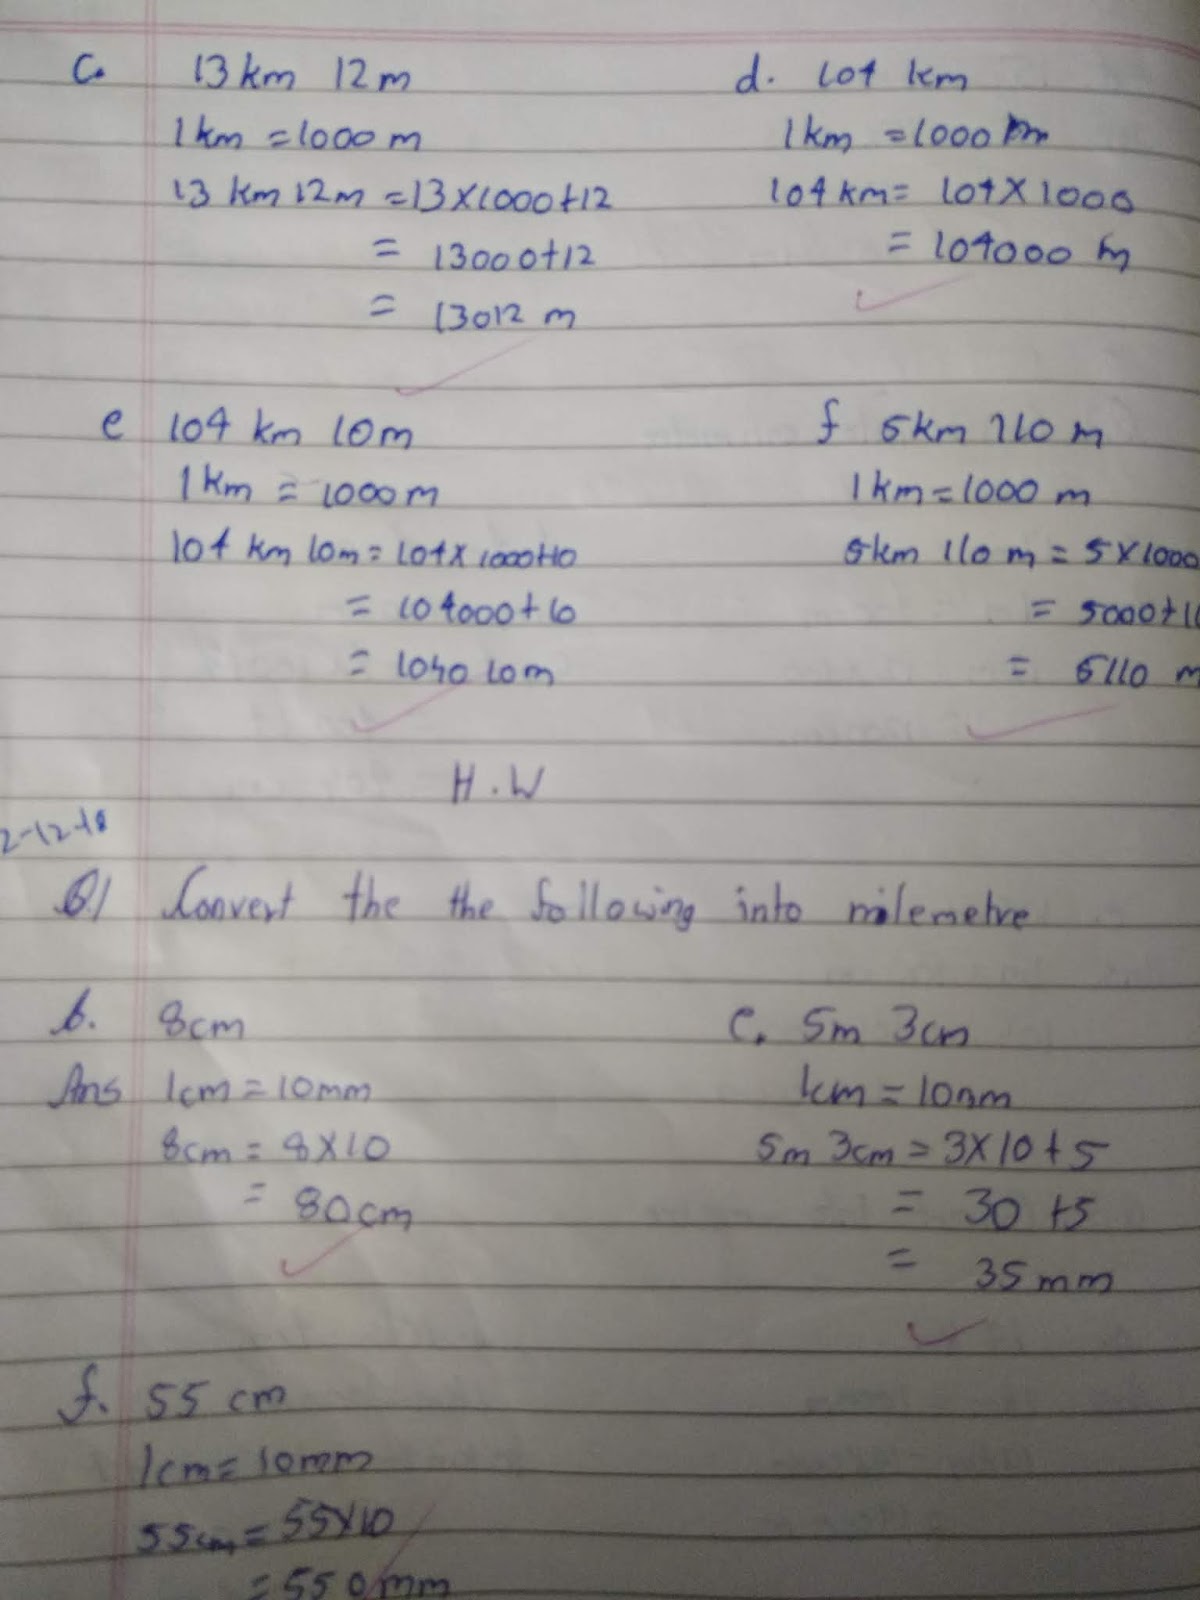 c. 13 km 12 m
1 km = 1000 m
13 km 12 m = 13 X 1000 + 12
= 13000 + 12
= 13012 m
d. 104 km
1 km = 1000 m
104 km = 104 X 1000
= 104000 m
e 104 km 10 m
1 km = 1000 m
104 km 10m = 104 X 1000 + 10
= 104000 + 10
= 104010 m
f 5km 110 m
1 km = 1000 m
5km 110 m = 5 X 1000
= 5000 + 1
= 5110 m
H.W
2-12-18
Q1 Convert the the following into milemetre
b. 8cm
Ans 1cm = 10mm
8cm = 8 X 10
= 80cm
e. 5m 3cm
1cm = 10mm
5m 3cm = 3X10 + 5
= 30 + 5
= 35 mm
f. 55 cm
1cm = 10mm
55cm = 55X10
= 550mm